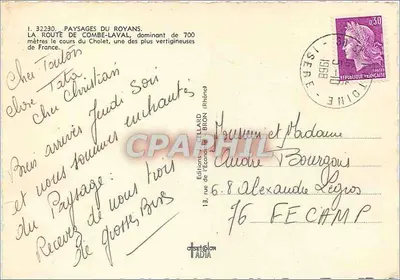 I. 32230. PAYSAGES DU ROYANS.
LA ROUTE DE COMBE-LAVAL, dominant de 700
mètres le cours du Cholet, une des plus vertigineuses
de France.
Cher Tonton
Chère Tata
Cher Christian
Bien arrivés Jeudi Soir
et nous sommes enchantés
du Paysage.
Recevez de nous trois
de grosses Bises
CPARPHIL
Editions
13, rue de l'Économie BRON (Rhône)
0,30
REPUBLIQUE FRANÇAISE
ISERE
1969
Monsieur et Madame
André Bourgons
6.8 Alexandre Legros
76 FECAMP
ADIA